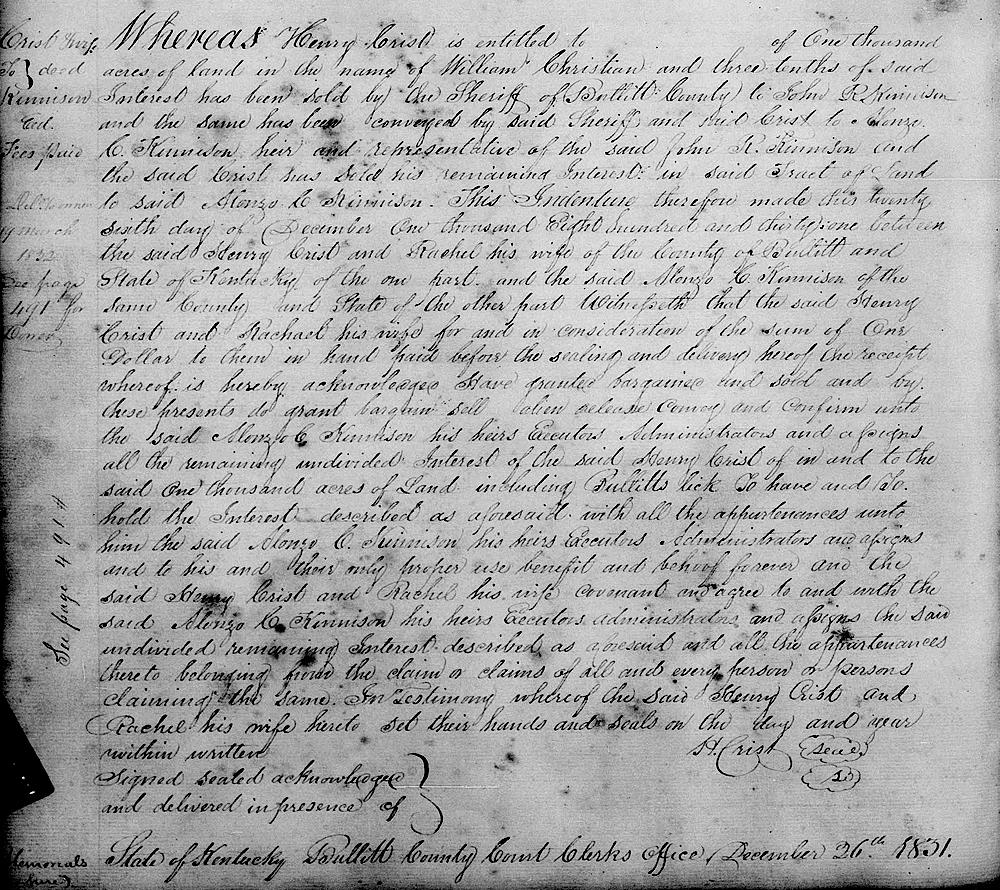 Crist & wife
To } deed
Kinnison
Exd.
Fees paid
Deld to owner
4 march
1832
See page
491 for
Dower
See page 491
Whereas Henry Crist is entitled to of One thousand
acres of land in the name of William Christian and three tenths of said
Interest has been sold by the Sheriff of Bullitt County to John R Kinnison
and the same has been conveyed by said Sheriff and said Crist to Alonzo
C. Kinnison heir and representative of the said John R. Kinnison and
the said Crist has sold his remaining Interest in said Tract of Land
to said Alonzo C Kinnison. This Indenture therefore made this twenty
sixth day of December One thousand Eight hundred and thirty one between
the said Henry Crist and Rachel his wife of the County of Bullitt and
State of Kentucky of the one part and the said Alonzo C. Kinnison of the
same County and State of the other part Witnesseth that the said Henry
Crist and Rachael his wife for and in consideration of the sum of One
Dollar to them in hand paid before the sealing and delivery hereof the receipt
whereof is hereby acknowledged Have granted bargained and sold and by
these presents do grant bargain sell alien release Convey and Confirm unto
the said Alonzo C Kinnison his heirs Executors Administrators and assigns
all the remaining undivided Interest of the said Henry Crist of in and to the
said One thousand acres of Land including Bullitts lick To have and To
hold the Interest described as aforesaid with all the appurtenances unto
him the said Alonzo C. Kinnison his heirs Executors Administrators and assigns
and to his and their only proper use benefit and behoof forever and the
said Henry Crist and Rachel his wife covenant and agree to and with the
said Alonzo C Kinnison his heirs Executors administrators and assigns the said
undivided remaining Interest described as aforesaid and all the appurtenances
thereto belonging from the claim or claims of all and every person or persons
claiming the same. In Testimony whereof the said Henry Crist and
Rachel his wife hereto set their hands and seals on the day and year
within written H Crist (Seal)
Signed sealed acknowledged
and delivered in presence of
State of Kentucky Bullitt County Court Clerks Office, December 26th 1831.